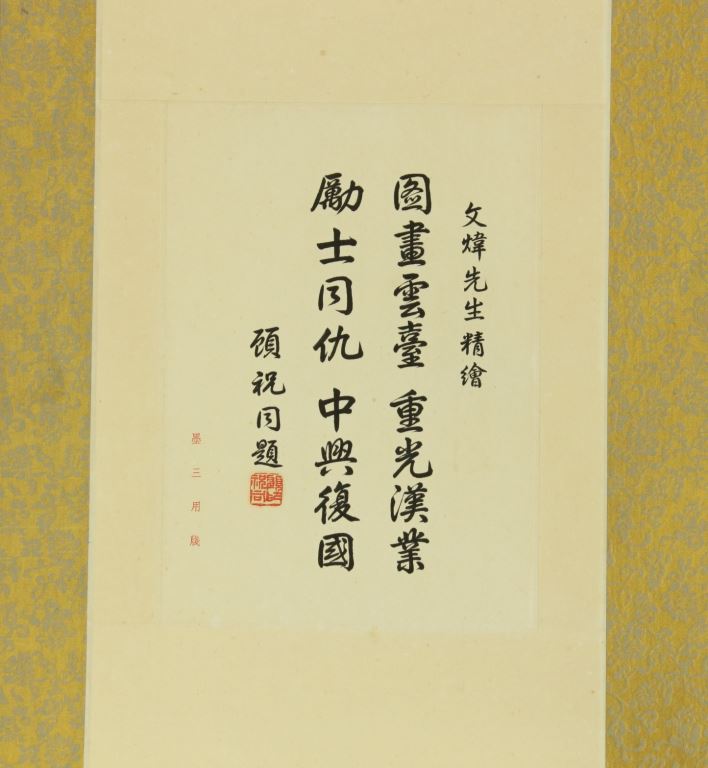 文煒先生精繪
圖畫雲臺 重光漢業
勵士同仇 中興復國
顧祝同題
顧祝同
墨三用牋